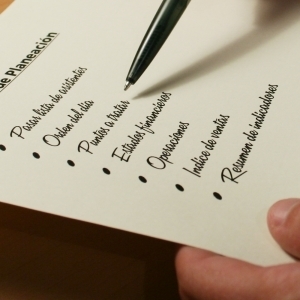 de Planeación
Pasar lista de asistentes
Orden del día
Puntos a tratar
Estados financieros
Operaciones
Indice de ventas
Resumen de indicadores